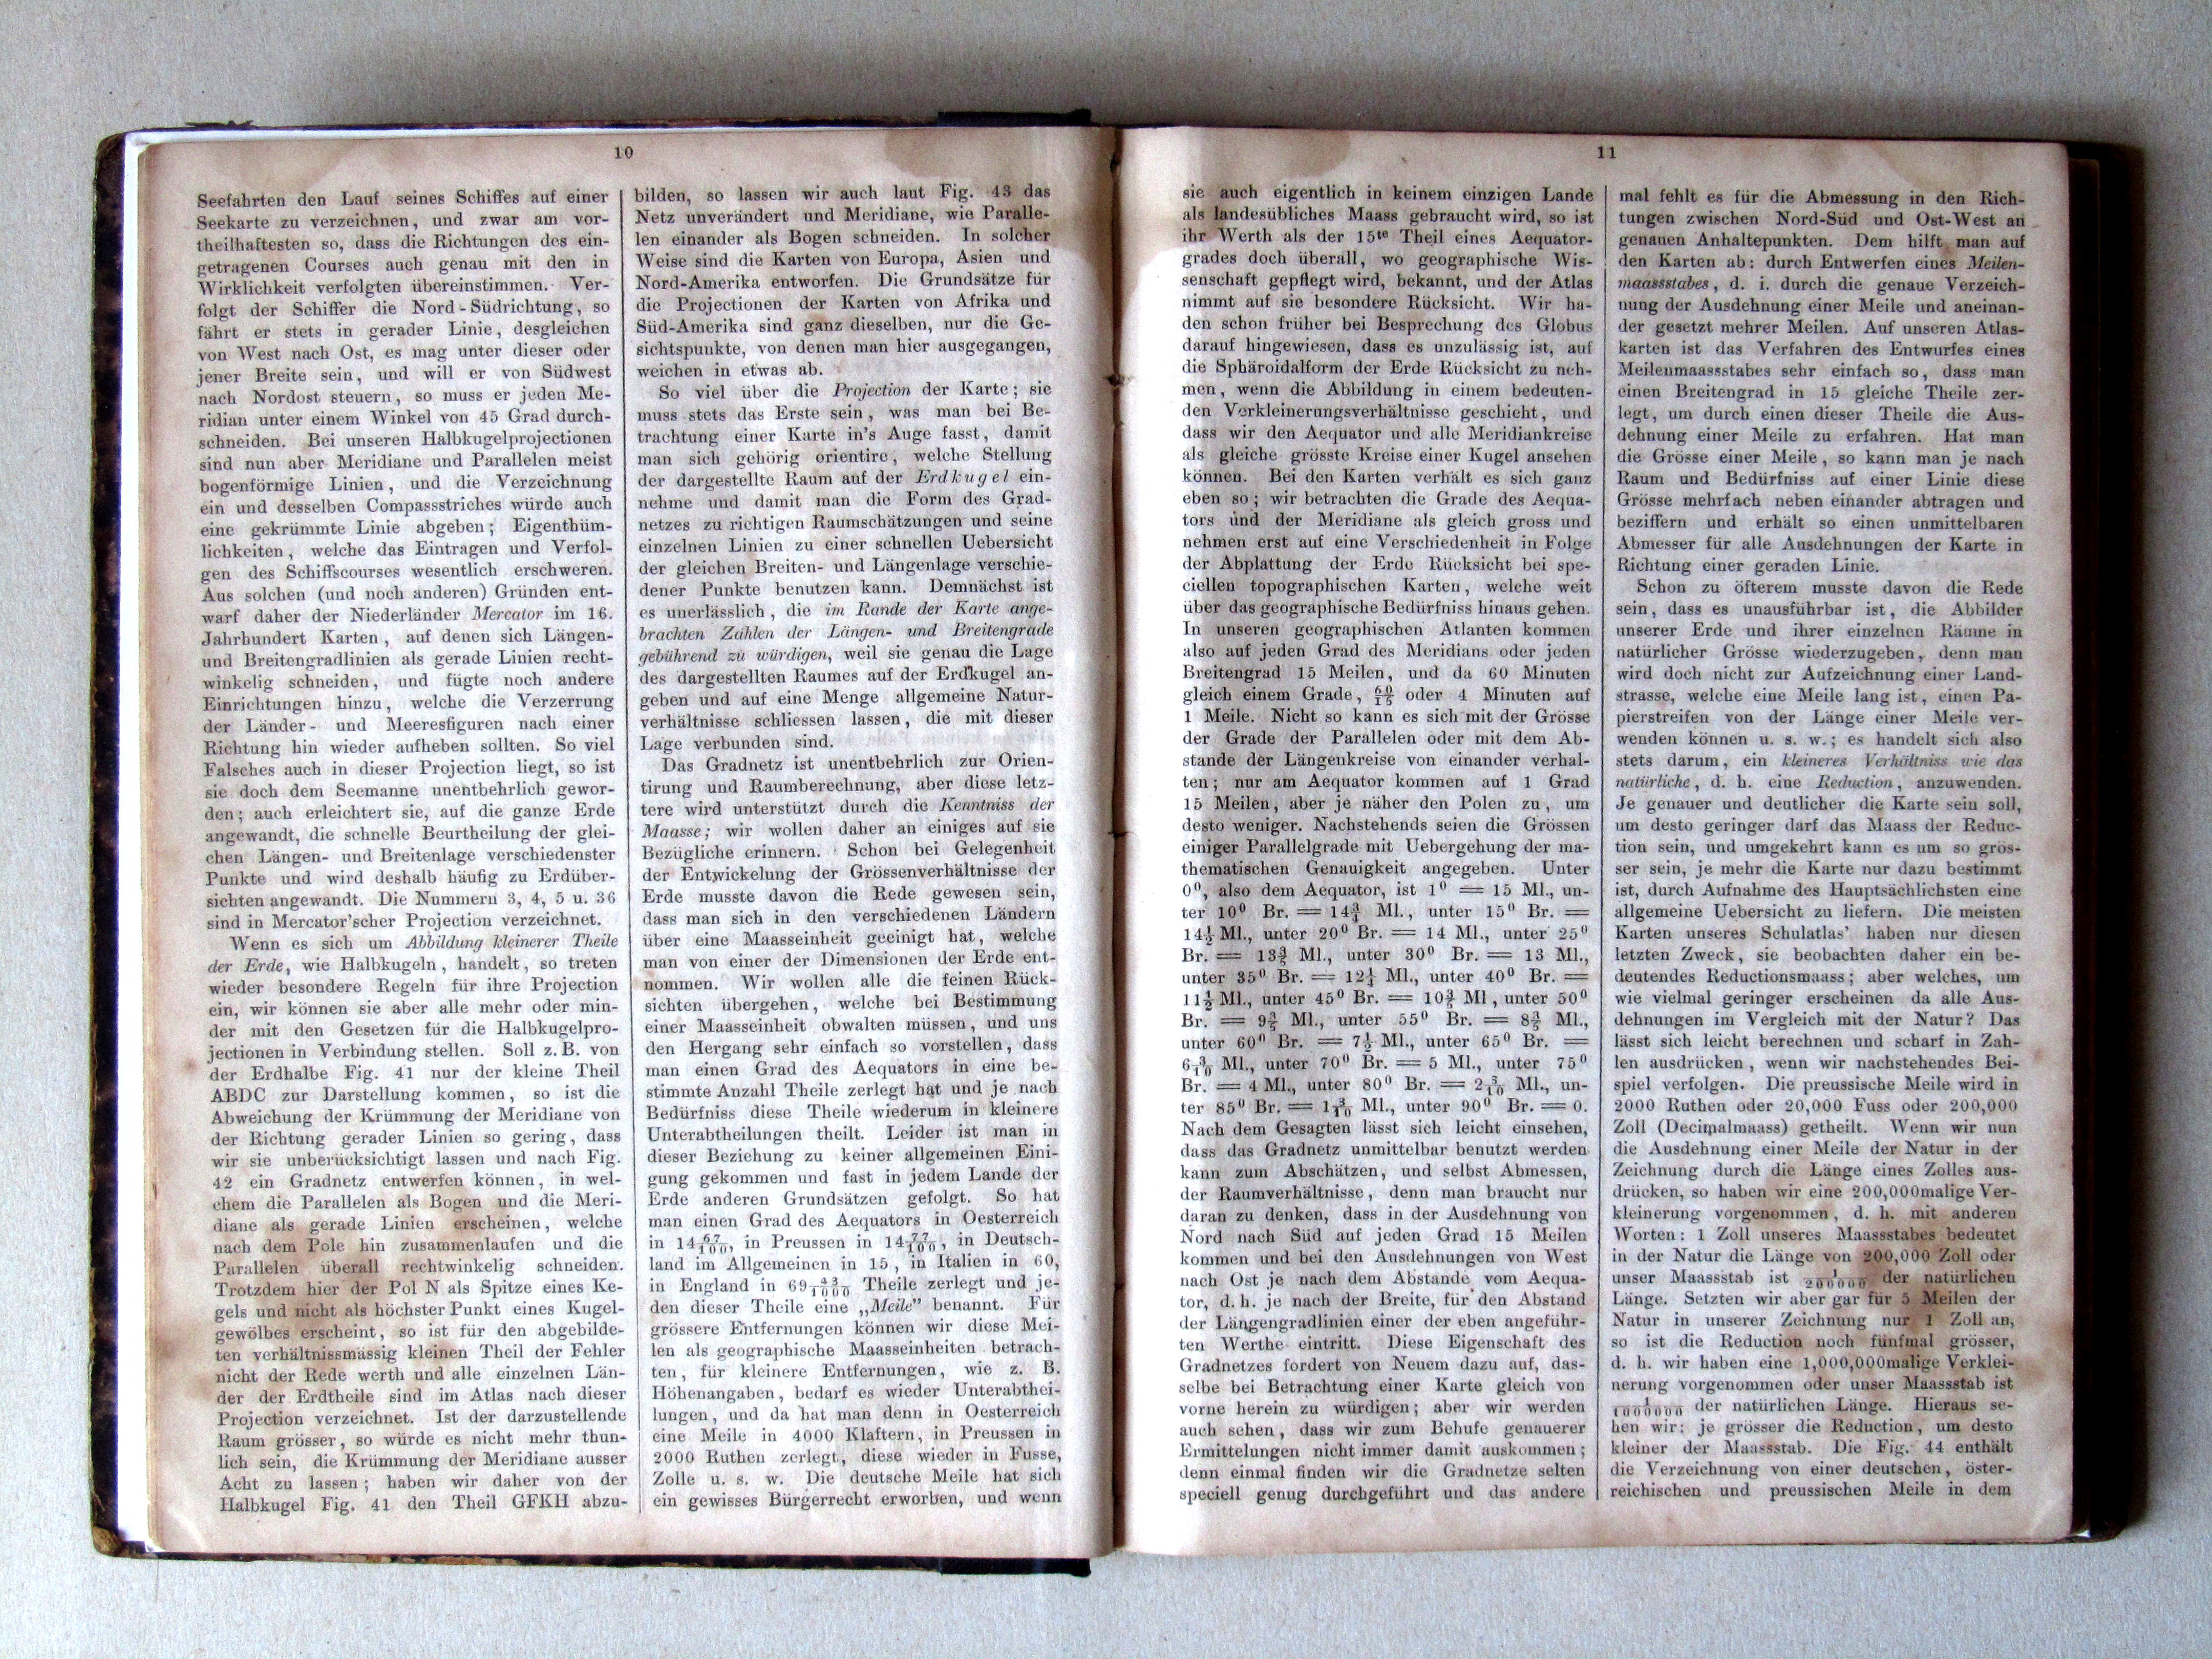 10
Seefahrten den Lauf seines Schiffes auf einer
Seekarte zu verzeichnen, und zwar am vor-
theilhaftesten so, dass die Richtungen des ein-
getragenen Courses auch genau mit den in
Wirklichkeit verfolgten übereinstimmen. Ver-
folgt der Schiffer die Nord-Südrichtung, so
fährt er stets in gerader Linie, desgleichen
von West nach Ost, es mag unter dieser oder
jener Breite sein, und will er von Südwest
nach Nordost steuern, so muss er jeden Me-
ridian unter einem Winkel von 45 Grad durch-
schneiden. Bei unseren Halbkugelprojectionen
sind nun aber Meridiane und Parallelen meist
bogenförmige Linien, und die Verzeichnung
ein und desselben Compassstriches würde auch
eine gekrümmte Linie abgeben; Eigenthüm-
lichkeiten, welche das Eintragen und Verfol-
gen des Schiffscourses wesentlich erschweren.
Aus solchen (und noch anderen) Gründen ent-
warf daher der Niederländer Mercator im 16.
Jahrhundert Karten, auf denen sich Längen-
und Breitengradlinien als gerade Linien recht-
winkelig schneiden, und fügte noch andere
Einrichtungen hinzu, welche die Verzerrung
der Länder- und Meeresfiguren nach einer
Richtung hin wieder aufheben sollten. So viel
Falsches auch in dieser Projection liegt, so ist
sie doch dem Seemanne unentbehrlich gewor-
den; auch erleichtert sie, auf die ganze Erde
angewandt, die schnelle Beurtheilung der glei-
chen Längen- und Breitenlage verschiedenster
Punkte und wird deshalb häufig zu Erdüber-
sichten angewandt. Die Nummern 3, 4, 5 u. 36
sind in Mercator'scher Projection verzeichnet.
Wenn es sich um Abbildung kleinerer Theile
der Erde, wie Halbkugeln, handelt, so treten
wieder besondere Regeln für ihre Projection
ein, wir können sie aber alle mehr oder min-
der mit den Gesetzen für die Halbkugelpro-
jectionen in Verbindung stellen. Soll z. B. von
der Erdhalbe Fig. 41 nur der kleine Theil
ABDC zur Darstellung kommen, so ist die
Abweichung der Krümmung der Meridiane von
der Richtung gerader Linien so gering, dass
wir sie unberücksichtigt lassen und nach Fig.
42 ein Gradnetz entwerfen können, in wel-
chem die Parallelen als Bogen und die Meri-
diane als gerade Linien erscheinen, welche
nach dem Pole hin zusammenlaufen und die
Parallelen überall rechtwinkelig schneiden.
Trotzdem hier der Pol N als Spitze eines Ke-
gels und nicht als höchster Punkt eines Kugel-
gewölbes erscheint, so ist für den abgebilde-
ten verhältnissmässig kleinen Theil der Fehler
nicht der Rede werth und alle einzelnen Län-
der der Erdtheile sind im Atlas nach dieser
Projection verzeichnet. Ist der darzustellende
Raum grösser, so würde es nicht mehr thun-
lich sein, die Krümmung der Meridiane ausser
Acht zu lassen; haben wir daher von der
Halbkugel Fig. 41 den Theil GFKH abzu-
bilden, so lassen wir auch laut Fig. 43 das
Netz unverändert und Meridiane, wie Paralle-
len einander als Bogen schneiden. In solcher
Weise sind die Karten von Europa, Asien und
Nord-Amerika entworfen. Die Grundsätze für
die Projectionen der Karten von Afrika und
Süd-Amerika sind ganz dieselben, nur die Ge-
sichtspunkte, von denen man hier ausgegangen,
weichen in etwas ab.
So viel über die Projection der Karte; sie
muss stets das Erste sein, was man bei Be-
trachtung einer Karte in's Auge fasst, damit
man sich gehörig orientire, welche Stellung
der dargestellte Raum auf der Erdkugel ein-
nehme und damit man die Form des Grad-
netzes zu richtigen Raumschätzungen und seine
einzelnen Linien zu einer schnellen Uebersicht
der gleichen Breiten- und Längenlage verschie-
dener Punkte benutzen kann. Demnächst ist
es unerlässlich, die im Rande der Karte ange-
brachten Zahlen der Längen- und Breitengrade
gebührend zu würdigen, weil sie genau die Lage
des dargestellten Raumes auf der Erdkugel an-
geben und auf eine Menge allgemeine Natur-
verhältnisse schliessen lassen, die mit dieser
Lage verbunden sind.
Das Gradnetz ist unentbehrlich zur Orien-
tirung und Raumberechnung, aber diese letz-
tere wird unterstützt durch die Kenntniss der
Maasse; wir wollen daher an einiges auf sie
Bezügliche erinnern. Schon bei Gelegenheit
der Entwickelung der Grössenverhältnisse der
Erde musste davon die Rede gewesen sein,
dass man sich in den verschiedenen Ländern
über eine Maasseinheit geeinigt hat, welche
man von einer der Dimensionen der Erde ent-
nommen. Wir wollen alle die feinen Rück-
sichten übergehen, welche bei Bestimmung
einer Maasseinheit obwalten müssen, und uns
den Hergang sehr einfach so vorstellen, dass
man einen Grad des Aequators in eine be-
stimmte Anzahl Theile zerlegt hat und je nach
Bedürfniss diese Theile wiederum in kleinere
Unterabtheilungen theilt. Leider ist man in
dieser Beziehung zu keiner allgemeinen Eini-
gung gekommen und fast in jedem Lande der
Erde anderen Grundsätzen gefolgt. So hat
man einen Grad des Aequators in Oesterreich
in 14 67/100, in Preussen in 14 77/100, in Deutsch-
land im Allgemeinen in 15, in Italien in 60,
in England in 69 43/1000 Theile zerlegt und je-
den dieser Theile eine „Meile” benannt. Für
grössere Entfernungen können wir diese Mei-
len als geographische Maasseinheiten betrach-
ten, für kleinere Entfernungen, wie z. B.
Höhenangaben, bedarf es wieder Unterabthei-
lungen, und da hat man denn in Oesterreich
eine Meile in 4000 Klaftern, in Preussen in
2000 Ruthen zerlegt, diese wieder in Fusse,
Zolle u. s. w. Die deutsche Meile hat sich
ein gewisses Bürgerrecht erworben, und wenn
11
sie auch eigentlich in keinem einzigen Lande
als landesübliches Maass gebraucht wird, so ist
ihr Werth als der 15te Theil eines Aequator-
grades doch überall, wo geographische Wis-
senschaft gepflegt wird, bekannt, und der Atlas
nimmt auf sie besondere Rücksicht. Wir ha-
den schon früher bei Besprechung des Globus
darauf hingewiesen, dass es unzulässig ist, auf
die Sphäroidalform der Erde Rücksicht zu neh-
men, wenn die Abbildung in einem bedeuten-
den Verkleinerungsverhältnisse geschieht, und
dass wir den Aequator und alle Meridiankreise
als gleiche grösste Kreise einer Kugel ansehen
können. Bei den Karten verhält es sich ganz
eben so; wir betrachten die Grade des Aequa-
tors und der Meridiane als gleich gross und
nehmen erst auf eine Verschiedenheit in Folge
der Abplattung der Erde Rücksicht bei spe-
ciellen topographischen Karten, welche weit
über das geographische Bedürfniss hinaus gehen.
In unseren geographischen Atlanten kommen
also auf jeden Grad des Meridians oder jeden
Breitengrad 15 Meilen, und da 60 Minuten
gleich einem Grade, 60/15 oder 4 Minuten auf
1 Meile. Nicht so kann es sich mit der Grösse
der Grade der Parallelen oder mit dem Ab-
stande der Längenkreise von einander verhal-
ten; nur am Aequator kommen auf 1 Grad
15 Meilen, aber je näher den Polen zu, um
desto weniger. Nachstehends seien die Grössen
einiger Parallelgrade mit Uebergehung der ma-
thematischen Genauigkeit angegeben. Unter
0⁰, also dem Aequator, ist 1⁰ = 15 Ml., un-
ter 10⁰ Br. = 14¾ Ml., unter 15⁰ Br. =
14½ Ml., unter 20⁰ Br. = 14 Ml., unter 25⁰
Br. = 13⅗ Ml., unter 30⁰ Br. = 13 Ml.,
unter 35⁰ Br. = 12¼ Ml., unter 40⁰ Br. =
11½ Ml., unter 45⁰ Br. = 10⅗ Ml, unter 50⁰
Br. = 9⅗ Ml., unter 55⁰ Br. = 8⅗ Ml.,
unter 60⁰ Br. = 7½ Ml., unter 65⁰ Br. =
6 3/10 Ml., unter 70⁰ Br. = 5 Ml., unter 75⁰
Br. = 4 Ml., unter 80⁰ Br. = 2 3/10 Ml., un-
ter 85⁰ Br. = 1 3/10 Ml., unter 90⁰ Br. = 0.
Nach dem Gesagten lässt sich leicht einsehen,
dass das Gradnetz unmittelbar benutzt werden
kann zum Abschätzen, und selbst Abmessen,
der Raumverhältnisse, denn man braucht nur
daran zu denken, dass in der Ausdehnung von
Nord nach Süd auf jeden Grad 15 Meilen
kommen und bei den Ausdehnungen von West
nach Ost je nach dem Abstande vom Aequa-
tor, d. h. je nach der Breite, für den Abstand
der Längengradlinien einer der eben angeführ-
ten Werthe eintritt. Diese Eigenschaft des
Gradnetzes fordert von Neuem dazu auf, das-
selbe bei Betrachtung einer Karte gleich von
vorne herein zu würdigen; aber wir werden
auch sehen, dass wir zum Behufe genauerer
Ermittelungen nicht immer damit auskommen;
denn einmal finden wir die Gradnetze selten
speciell genug durchgeführt und das andere
mal fehlt es für die Abmessung in den Rich-
tungen zwischen Nord-Süd und Ost-West an
genauen Anhaltepunkten. Dem hilft man auf
den Karten ab: durch Entwerfen eines Meilen-
maassstabes, d. i. durch die genaue Verzeich-
nung der Ausdehnung einer Meile und aneinan-
der gesetzt mehrer Meilen. Auf unseren Atlas-
karten ist das Verfahren des Entwurfes eines
Meilenmaassstabes sehr einfach so, dass man
einen Breitengrad in 15 gleiche Theile zer-
legt, um durch einen dieser Theile die Aus-
dehnung einer Meile zu erfahren. Hat man
die Grösse einer Meile, so kann man je nach
Raum und Bedürfniss auf einer Linie diese
Grösse mehrfach neben einander abtragen und
beziffern und erhält so einen unmittelbaren
Abmesser für alle Ausdehnungen der Karte in
Richtung einer geraden Linie.
Schon zu öfterem musste davon die Rede
sein, dass es unausführbar ist, die Abbilder
unserer Erde und ihrer einzelnen Räume in
natürlicher Grösse wiederzugeben, denn man
wird doch nicht zur Aufzeichnung einer Land-
strasse, welche eine Meile lang ist, einen Pa-
pierstreifen von der Länge einer Meile ver-
wenden können u. s. w.; es handelt sich also
stets darum, ein kleineres Verhältniss wie das
natürliche, d. h. eine Reduction, anzuwenden.
Je genauer und deutlicher die Karte sein soll,
um desto geringer darf das Maass der Reduc-
tion sein, und umgekehrt kann es um so grös-
ser sein, je mehr die Karte nur dazu bestimmt
ist, durch Aufnahme des Hauptsächlichsten eine
allgemeine Uebersicht zu liefern. Die meisten
Karten unseres Schulatlas' haben nur diesen
letzten Zweck, sie beobachten daher ein be-
deutendes Reductionsmaass; aber welches, um
wie vielmal geringer erscheinen da alle Aus-
dehnungen im Vergleich mit der Natur? Das
lässt sich leicht berechnen und scharf in Zah-
len ausdrücken, wenn wir nachstehendes Bei-
spiel verfolgen. Die preussische Meile wird in
2000 Ruthen oder 20,000 Fuss oder 200,000
Zoll (Decimalmaass) getheilt. Wenn wir nun
die Ausdehnung einer Meile der Natur in der
Zeichnung durch die Länge eines Zolles aus-
drücken, so haben wir eine 200,000malige Ver-
kleinerung vorgenommen, d. h. mit anderen
Worten: 1 Zoll unseres Maassstabes bedeutet
in der Natur die Länge von 200,000 Zoll oder
unser Maassstab ist 1/200000 der natürlichen
Länge. Setzten wir aber gar für 5 Meilen der
Natur in unserer Zeichnung nur 1 Zoll an,
so ist die Reduction noch fünfmal grösser,
d. h. wir haben eine 1,000,000malige Verklei-
nerung vorgenommen oder unser Maassstab ist
1/1000000 der natürlichen Länge. Hieraus se-
hen wir: je grösser die Reduction, um desto
kleiner der Maassstab. Die Fig. 44 enthält
die Verzeichnung von einer deutschen, öster-
reichischen und preussischen Meile in dem